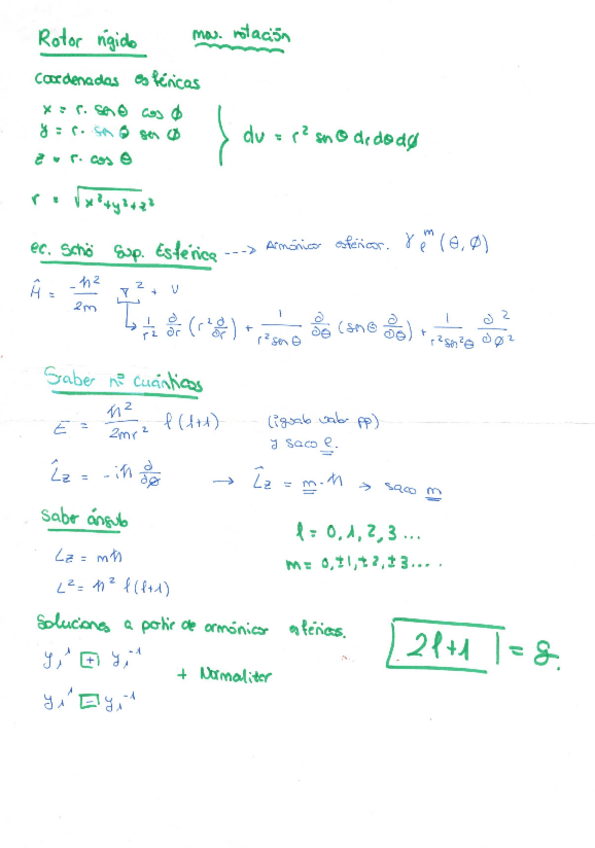 Rotor rígido mov. rotación
Coordenadas esféricas
x = r · senθ cos φ
y = r · senθ sen φ
z = r · cos θ
dv = r² senθ dr dθ dφ
r = √x²+y²+z²
ec. Schö Sup. Esférica ---> Armónicos esféricos. Y_ℓ^m (θ, φ)
Ĥ = -ħ²/2m ∇² + V
↳ 1/r² ∂/∂r (r² ∂/∂r) + 1/(r² senθ) ∂/∂θ (senθ ∂/∂θ) + 1/(r² sen²θ) ∂²/∂φ²
Saber nº cuánticos
E = ħ²/2mr² ℓ(ℓ+1) (igualo valor pp)
y saco ℓ.
L̂z = -iħ ∂/∂φ → L̂z = m·ħ → saco m
Saber ángulo
Lz = mħ
L² = ħ² ℓ(ℓ+1)
ℓ = 0, 1, 2, 3 ...
m = 0, ±1, ±2, ±3 ....
Soluciones a partir de armónicos esféricos.
y₁¹ + y₁⁻¹
+ Normalizar
y₁¹ - y₁⁻¹
2ℓ+1 = g.